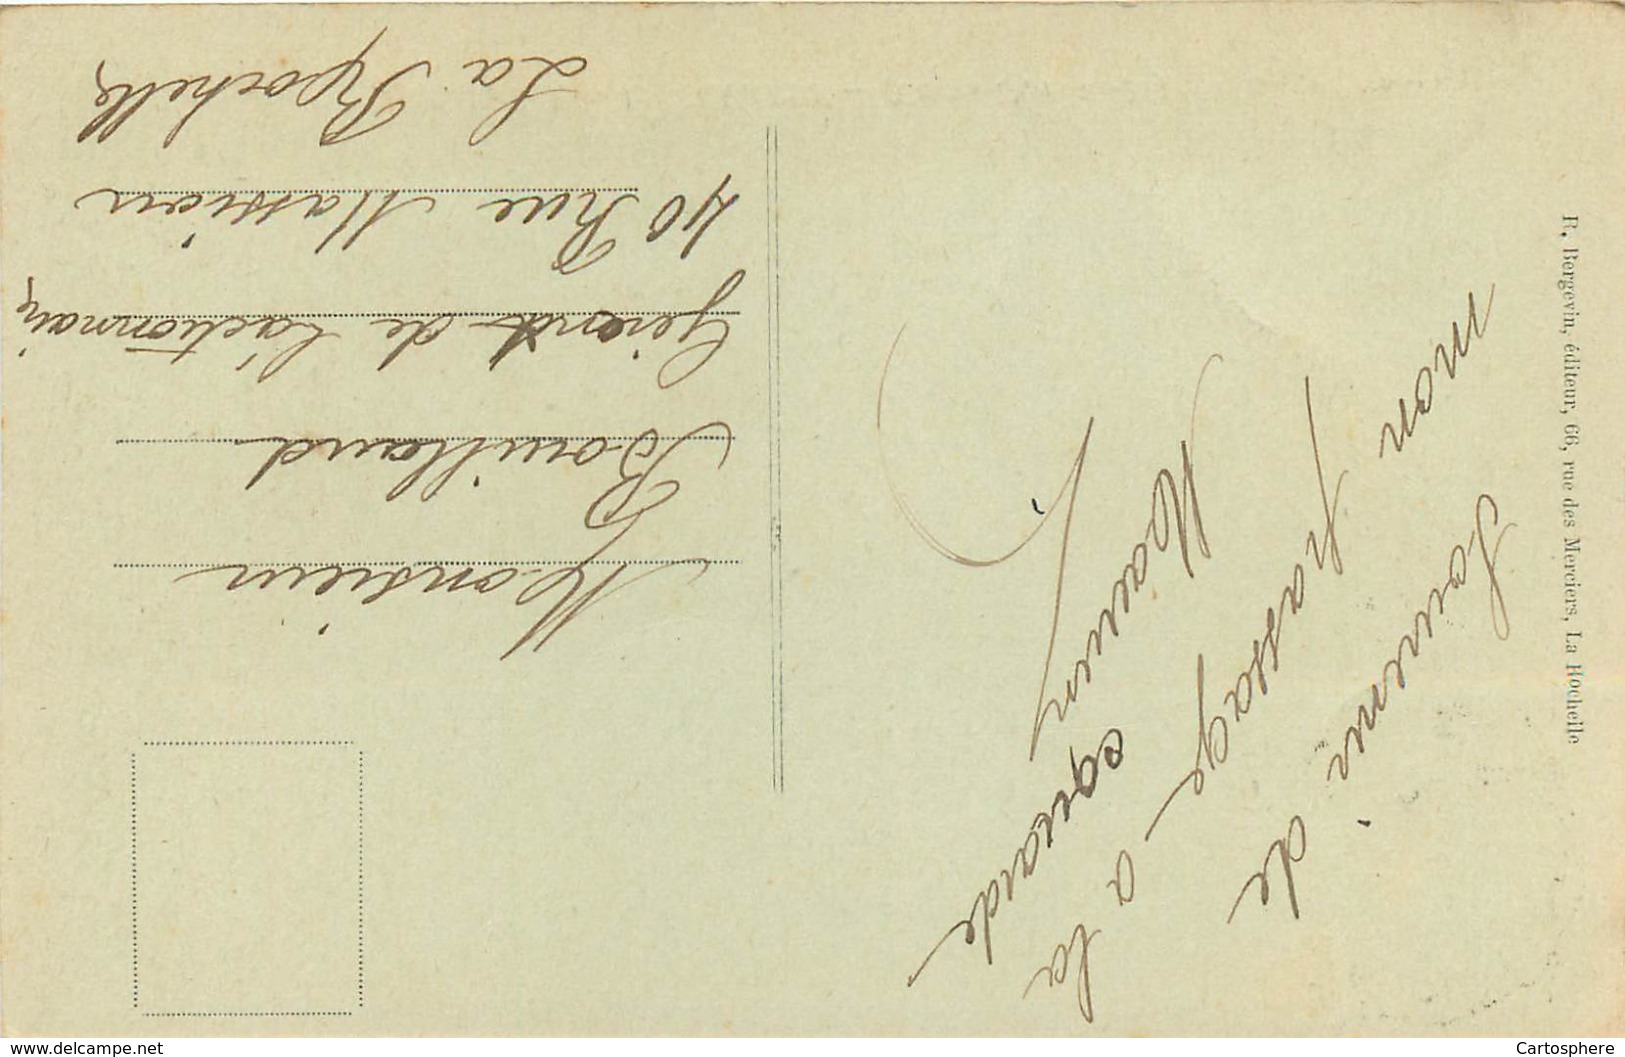 Souvenir de
mon passage a la
Noauen
eguade
Monsieur
Bouilland
Gérant de l'actionnaire
40 Rue Massiou
La Rochelle
R. Bergevin, éditeur, 66, rue des Merciers, La Rochelle
www.delcampe.net
Cartosphere